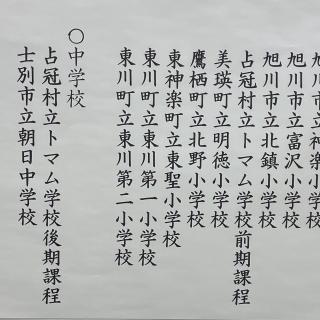 旭川市立神楽小
旭川市立富沢小学校
旭川市立北鎮小学校
占冠村立トマム学校前期課程
美瑛町立明徳小学校
鷹栖町立北野小学校
東神楽町立東聖小学校
東川町立東川第一小学校
東川町立東川第二小学校
○中学校
占冠村立トマム学校後期課程
士別市立朝日中学校